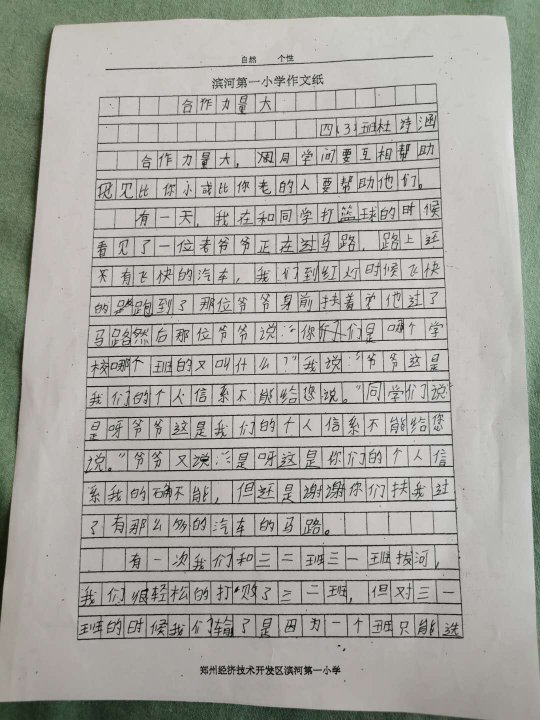 自然 个性
滨河第一小学作文纸
合作力量大
四(3)班杜诗涵
合作力量大,同学间要互相帮助
见比你小或比你老的人要帮助他们。
有一天,我在和同学打篮球的时候
看见了一位老爷爷正在过马路,路上还
有飞快的汽车,我们到红灯时候飞快
的跑到了那位爷爷身前扶着他过了
马路然后那位爷爷说:“你们是哪个学
校哪个班的又叫什么?”我说:“爷爷这是
我们的个人信系不能给您说。”同学们说:“
是呀爷爷这是我们的个人信系不能给您
说。”爷爷又说:“是呀这是你们的个人信
系我的确不能,但还是谢谢你们扶我过
了有那么多的汽车的马路。
有一次我们和三二班三一班拔河,
我们很轻松的打败了三二班,但对三一
班的时候我们输了是因为一个班只能选
郑州经济技术开发区滨河第一小学